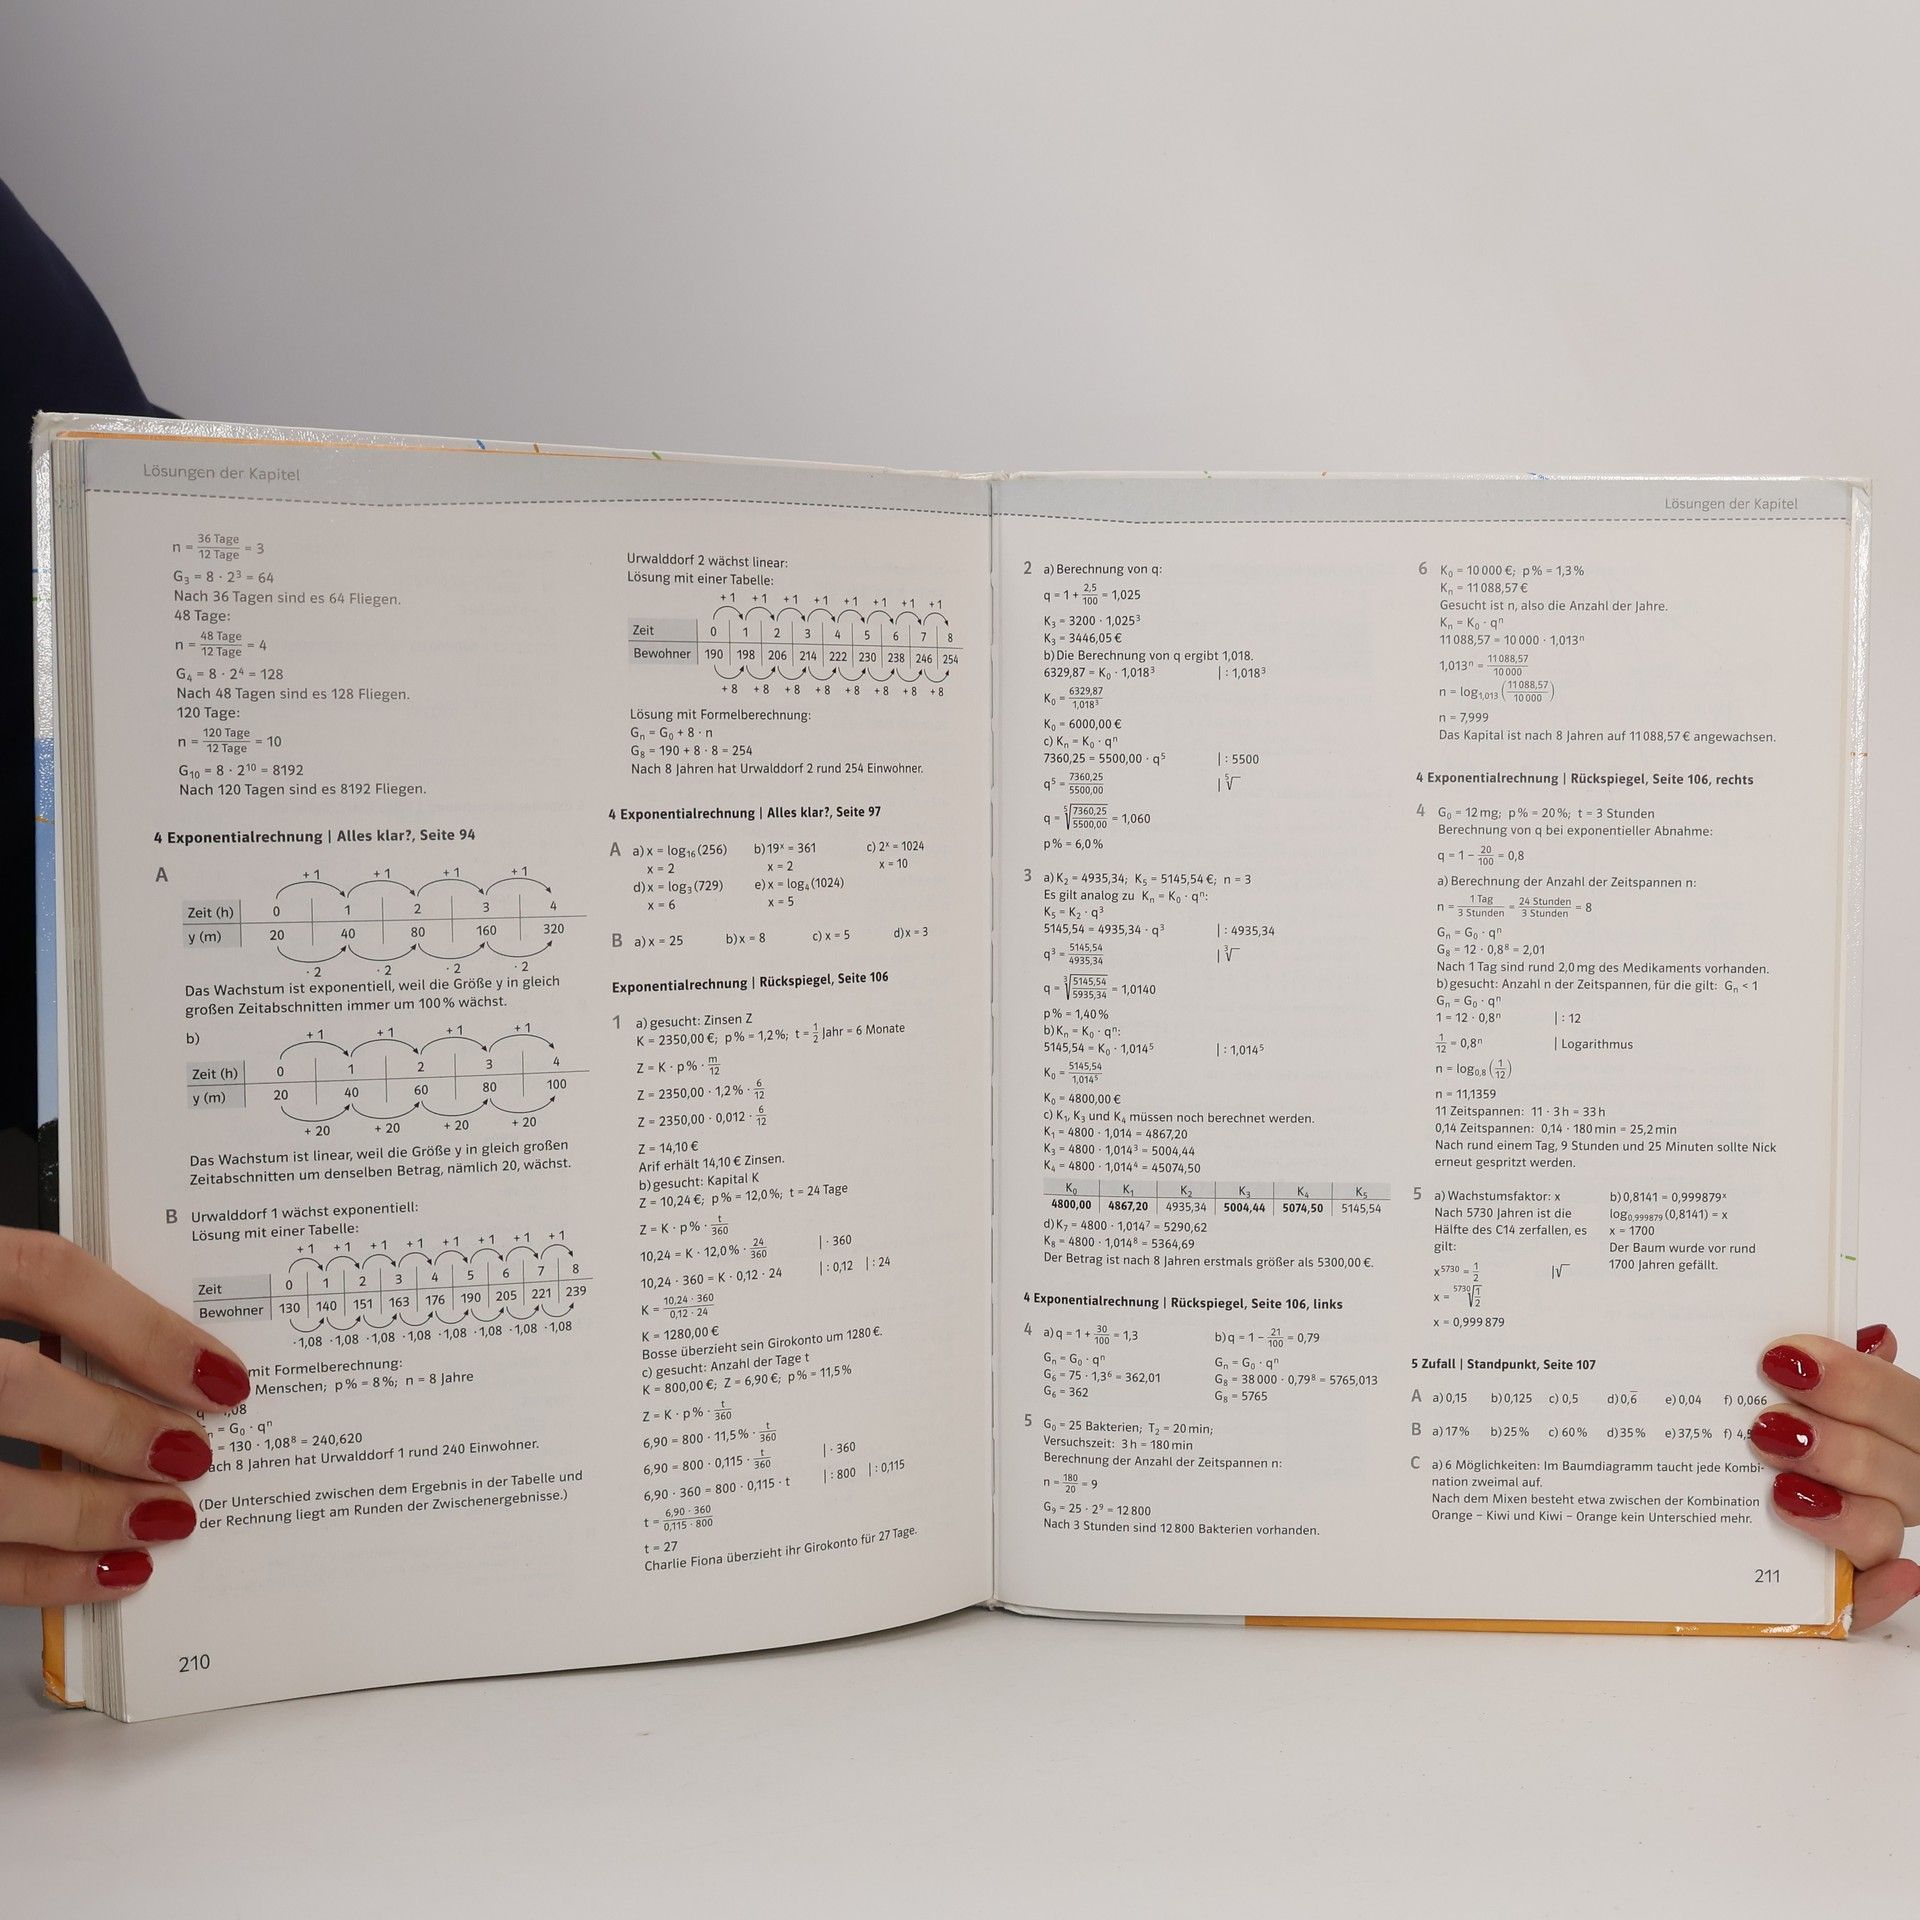 Lösungen der Kapitel
n = 36 Tage / 12 Tage = 3
G₃ = 8 · 2³ = 64
Nach 36 Tagen sind es 64 Fliegen.
48 Tage:
n = 48 Tage / 12 Tage = 4
G₄ = 8 · 2⁴ = 128
Nach 48 Tagen sind es 128 Fliegen.
120 Tage:
n = 120 Tage / 12 Tage = 10
G₁₀ = 8 · 2¹⁰ = 8192
Nach 120 Tagen sind es 8192 Fliegen.
4 Exponentialrechnung | Alles klar?, Seite 94
A
+1 +1 +1 +1
Zeit (h) 0 1 2 3 4
y (m) 20 40 80 160 320
· 2 · 2 · 2 · 2
Das Wachstum ist exponentiell, weil die Größe y in gleich
großen Zeitabschnitten immer um 100 % wächst.
b)
+1 +1 +1 +1
Zeit (h) 0 1 2 3 4
y (m) 20 40 60 80 100
+ 20 + 20 + 20 + 20
Das Wachstum ist linear, weil die Größe y in gleich großen
Zeitabschnitten um denselben Betrag, nämlich 20, wächst.
B Urwalddorf 1 wächst exponentiell:
Lösung mit einer Tabelle:
+1 +1 +1 +1 +1 +1 +1 +1
Zeit 0 1 2 3 4 5 6 7 8
Bewohner 130 140 151 163 176 190 205 221 239
·1,08 ·1,08 ·1,08 ·1,08 ·1,08 ·1,08 ·1,08 ·1,08
mit Formelberechnung:
Menschen; p % = 8 %; n = 8 Jahre
q 1,08
= G₀ · qⁿ
= 130 · 1,08⁸ = 240,620
ach 8 Jahren hat Urwalddorf 1 rund 240 Einwohner.
(Der Unterschied zwischen dem Ergebnis in der Tabelle und
der Rechnung liegt am Runden der Zwischenergebnisse.)
210
Urwalddorf 2 wächst linear:
Lösung mit einer Tabelle:
+1 +1 +1 +1 +1 +1 +1 +1
Zeit 0 1 2 3 4 5 6 7 8
Bewohner 190 198 206 214 222 230 238 246 254
+ 8 + 8 + 8 + 8 + 8 + 8 + 8 + 8
Lösung mit Formelberechnung:
Gₙ = G₀ + 8 · n
G₈ = 190 + 8 · 8 = 254
Nach 8 Jahren hat Urwalddorf 2 rund 254 Einwohner.
4 Exponentialrechnung | Alles klar?, Seite 97
A a) x = log₁₆ (256) b) 19ˣ = 361 c) 2ˣ = 1024
x = 2 x = 2 x = 10
d) x = log₃ (729) e) x = log₄ (1024)
x = 6 x = 5
B a) x = 25 b) x = 8 c) x = 5 d) x = 3
Exponentialrechnung | Rückspiegel, Seite 106
1 a) gesucht: Zinsen Z
K = 2350,00 €; p % = 1,2 %; t = 1/2 Jahr = 6 Monate
Z = K · p % · m/12
Z = 2350,00 · 1,2 % · 6/12
Z = 2350,00 · 0,012 · 6/12
Z = 14,10 €
Arif erhält 14,10 € Zinsen.
b) gesucht: Kapital K
Z = 10,24 €; p % = 12,0 %; t = 24 Tage
Z = K · p % · t/360
10,24 = K · 12,0 % · 24/360 | · 360
10,24 · 360 = K · 0,12 · 24 | : 0,12 | : 24
K = 10,24 · 360 / 0,12 · 24
K = 1280,00 €
Bosse überzieht sein Girokonto um 1280 €.
c) gesucht: Anzahl der Tage t
K = 800,00 €; Z = 6,90 €; p % = 11,5 %
Z = K · p % · t/360
6,90 = 800 · 11,5 % · t/360
6,90 = 800 · 0,115 · t/360 | · 360
6,90 · 360 = 800 · 0,115 · t | : 800 | : 0,115
t = 6,90 · 360 / 0,115 · 800
t = 27
Charlie Fiona überzieht ihr Girokonto für 27 Tage.
Lösungen der Kapitel
2 a) Berechnung von q:
q = 1 + 2,5/100 = 1,025
K₃ = 3200 · 1,025³
K₃ = 3446,05 €
b) Die Berechnung von q ergibt 1,018.
6329,87 = K₀ · 1,018³ | : 1,018³
K₀ = 6329,87 / 1,018³
K₀ = 6000,00 €
c) Kₙ = K₀ · qⁿ
7360,25 = 5500,00 · q⁵ | : 5500
q⁵ = 7360,25 / 5500,00 | ⁵√
q = ⁵√(7360,25 / 5500,00) = 1,060
p % = 6,0 %
3 a) K₂ = 4935,34; K₅ = 5145,54 €; n = 3
Es gilt analog zu Kₙ = K₀ · qⁿ:
K₅ = K₂ · q³
5145,54 = 4935,34 · q³ | : 4935,34
q³ = 5145,54 / 4935,34 | ³√
q = ³√(5145,54 / 5935,34) = 1,0140
p % = 1,40 %
b) Kₙ = K₀ · qⁿ:
5145,54 = K₀ · 1,014⁵ | : 1,014⁵
K₀ = 5145,54 / 1,014⁵
K₀ = 4800,00 €
c) K₁, K₃ und K₄ müssen noch berechnet werden.
K₁ = 4800 · 1,014 = 4867,20
K₃ = 4800 · 1,014³ = 5004,44
K₄ = 4800 · 1,014⁴ = 45074,50
K₀ K₁ K₂ K₃ K₄ K₅
4800,00 4867,20 4935,34 5004,44 5074,50 5145,54
d) K₇ = 4800 · 1,014⁷ = 5290,62
K₈ = 4800 · 1,014⁸ = 5364,69
Der Betrag ist nach 8 Jahren erstmals größer als 5300,00 €.
4 Exponentialrechnung | Rückspiegel, Seite 106, links
4 a) q = 1 + 30/100 = 1,3 b) q = 1 − 21/100 = 0,79
Gₙ = G₀ · qⁿ Gₙ = G₀ · qⁿ
G₆ = 75 · 1,3⁶ = 362,01 G₈ = 38 000 · 0,79⁸ = 5765,013
G₆ = 362 G₈ = 5765
5 G₀ = 25 Bakterien; T₂ = 20 min;
Versuchszeit: 3 h = 180 min
Berechnung der Anzahl der Zeitspannen n:
n = 180/20 = 9
G₉ = 25 · 2⁹ = 12 800
Nach 3 Stunden sind 12 800 Bakterien vorhanden.
6 K₀ = 10 000 €; p % = 1,3 %
Kₙ = 11 088,57 €
Gesucht ist n, also die Anzahl der Jahre.
Kₙ = K₀ · qⁿ
11 088,57 = 10 000 · 1,013ⁿ
1,013ⁿ = 11 088,57 / 10 000
n = log₁,₀₁₃ (11 088,57 / 10 000)
n = 7,999
Das Kapital ist nach 8 Jahren auf 11 088,57 € angewachsen.
4 Exponentialrechnung | Rückspiegel, Seite 106, rechts
4 G₀ = 12 mg; p % = 20 %; t = 3 Stunden
Berechnung von q bei exponentieller Abnahme:
q = 1 − 20/100 = 0,8
a) Berechnung der Anzahl der Zeitspannen n:
n = 1 Tag / 3 Stunden = 24 Stunden / 3 Stunden = 8
Gₙ = G₀ · qⁿ
G₈ = 12 · 0,8⁸ = 2,01
Nach 1 Tag sind rund 2,0 mg des Medikaments vorhanden.
b) gesucht: Anzahl n der Zeitspannen, für die gilt: Gₙ < 1
Gₙ = G₀ · qⁿ
1 = 12 · 0,8ⁿ | : 12
1/12 = 0,8ⁿ | Logarithmus
n = log₀,₈ (1/12)
n = 11,1359
11 Zeitspannen: 11 · 3 h = 33 h
0,14 Zeitspannen: 0,14 · 180 min = 25,2 min
Nach rund einem Tag, 9 Stunden und 25 Minuten sollte Nick
erneut gespritzt werden.
5 a) Wachstumsfaktor: x b) 0,8141 = 0,999879ˣ
Nach 5730 Jahren ist die log₀,₉₉₉₈₇₉ (0,8141) = x
Hälfte des C14 zerfallen, es x = 1700
gilt: Der Baum wurde vor rund
1700 Jahren gefällt.
x⁵⁷³⁰ = 1/2 | √
x = ⁵⁷³⁰√(1/2)
x = 0,999 879
5 Zufall | Standpunkt, Seite 107
A a) 0,15 b) 0,125 c) 0,5 d) 0,6̅ e) 0,04 f) 0,066
B a) 17 % b) 25 % c) 60 % d) 35 % e) 37,5 % f)
C a) 6 Möglichkeiten: Im Baumdiagramm taucht jede Kombi-
nation zweimal auf.
Nach dem Mixen besteht etwa zwischen der Kombination
Orange – Kiwi und Kiwi – Orange kein Unterschied mehr.
211